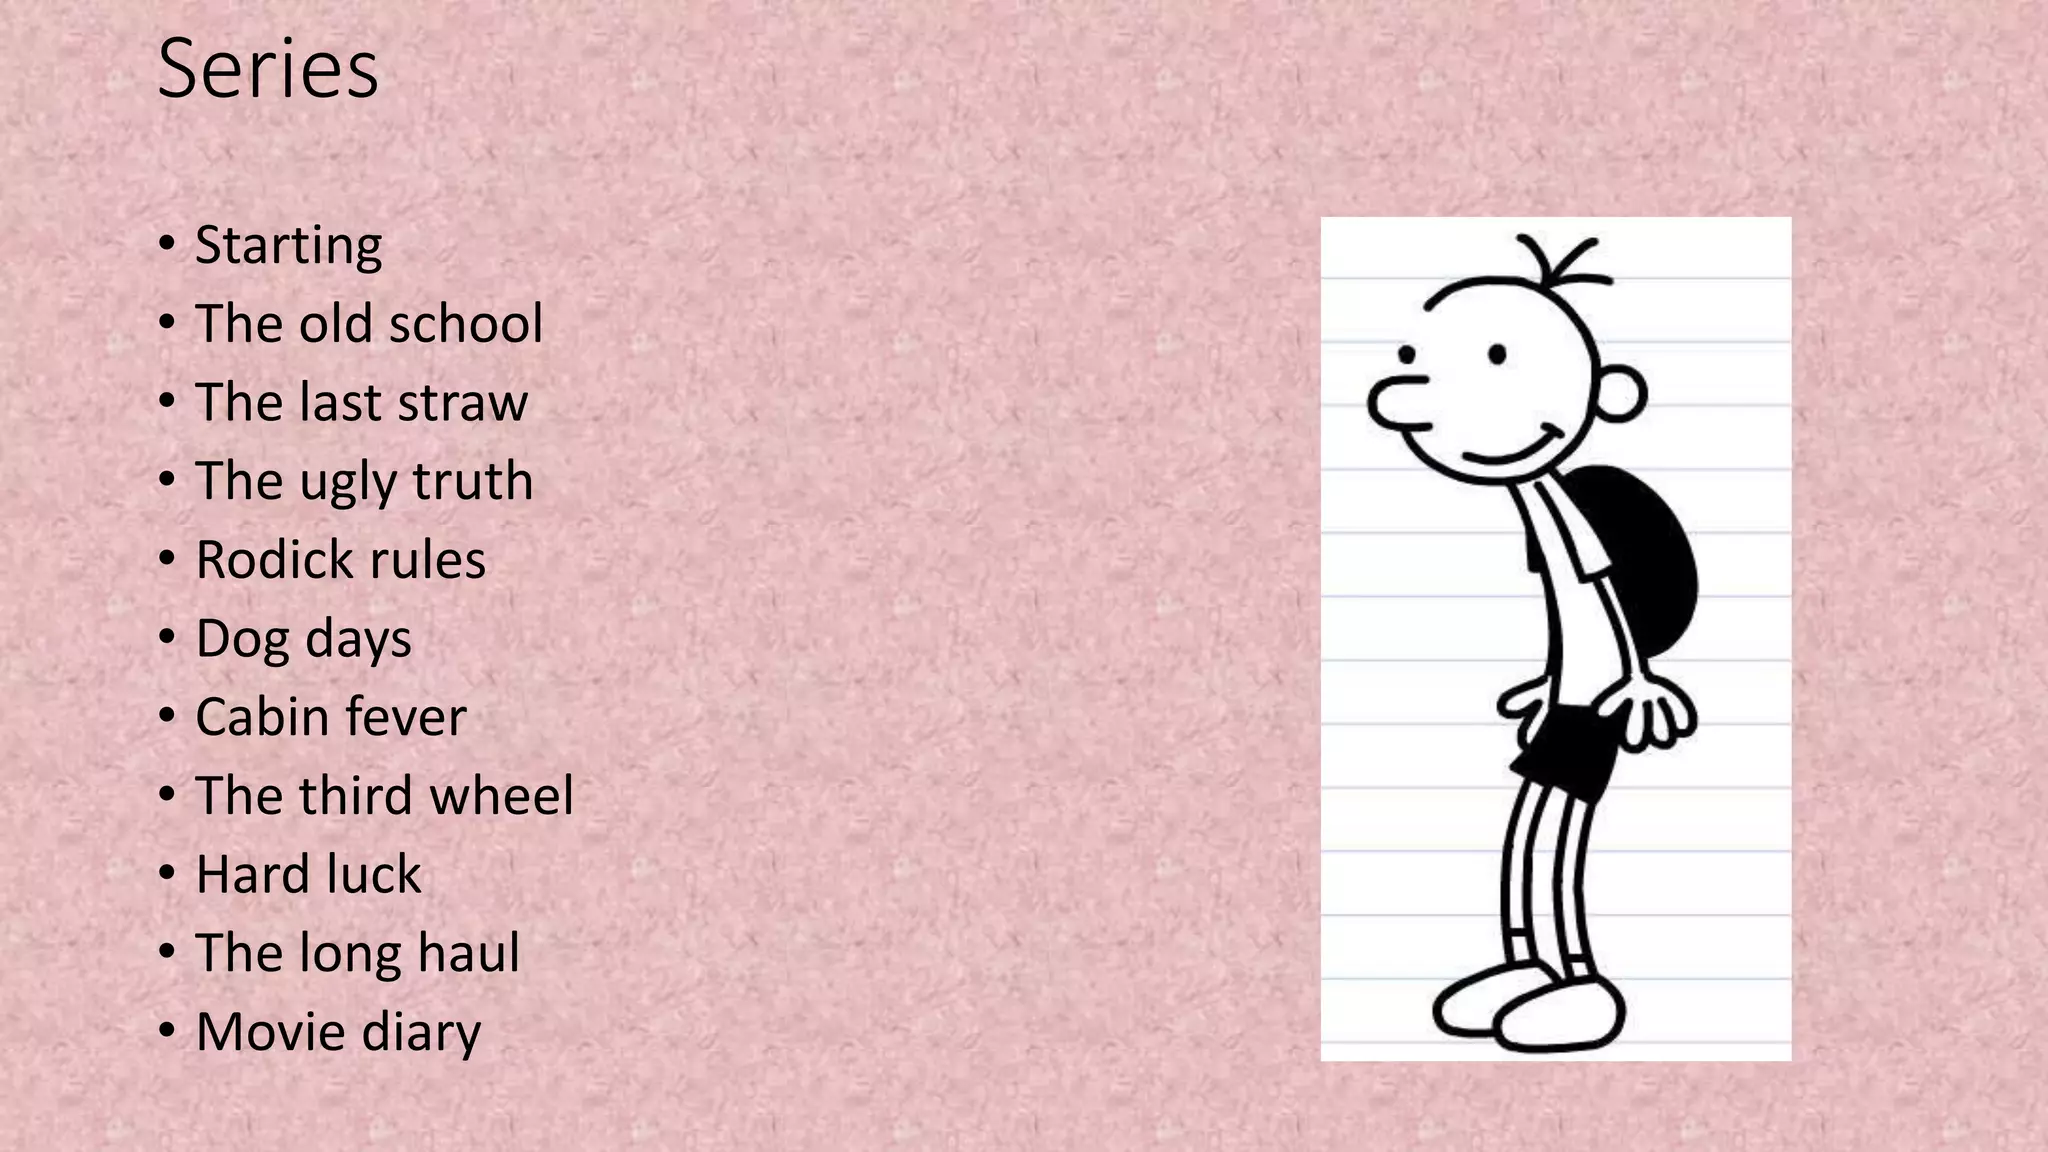 Series
• Starting
• The old school
• The last straw
• The ugly truth
• Rodick rules
• Dog days
• Cabin fever
• The third wheel
• Hard luck
• The long haul
• Movie diary